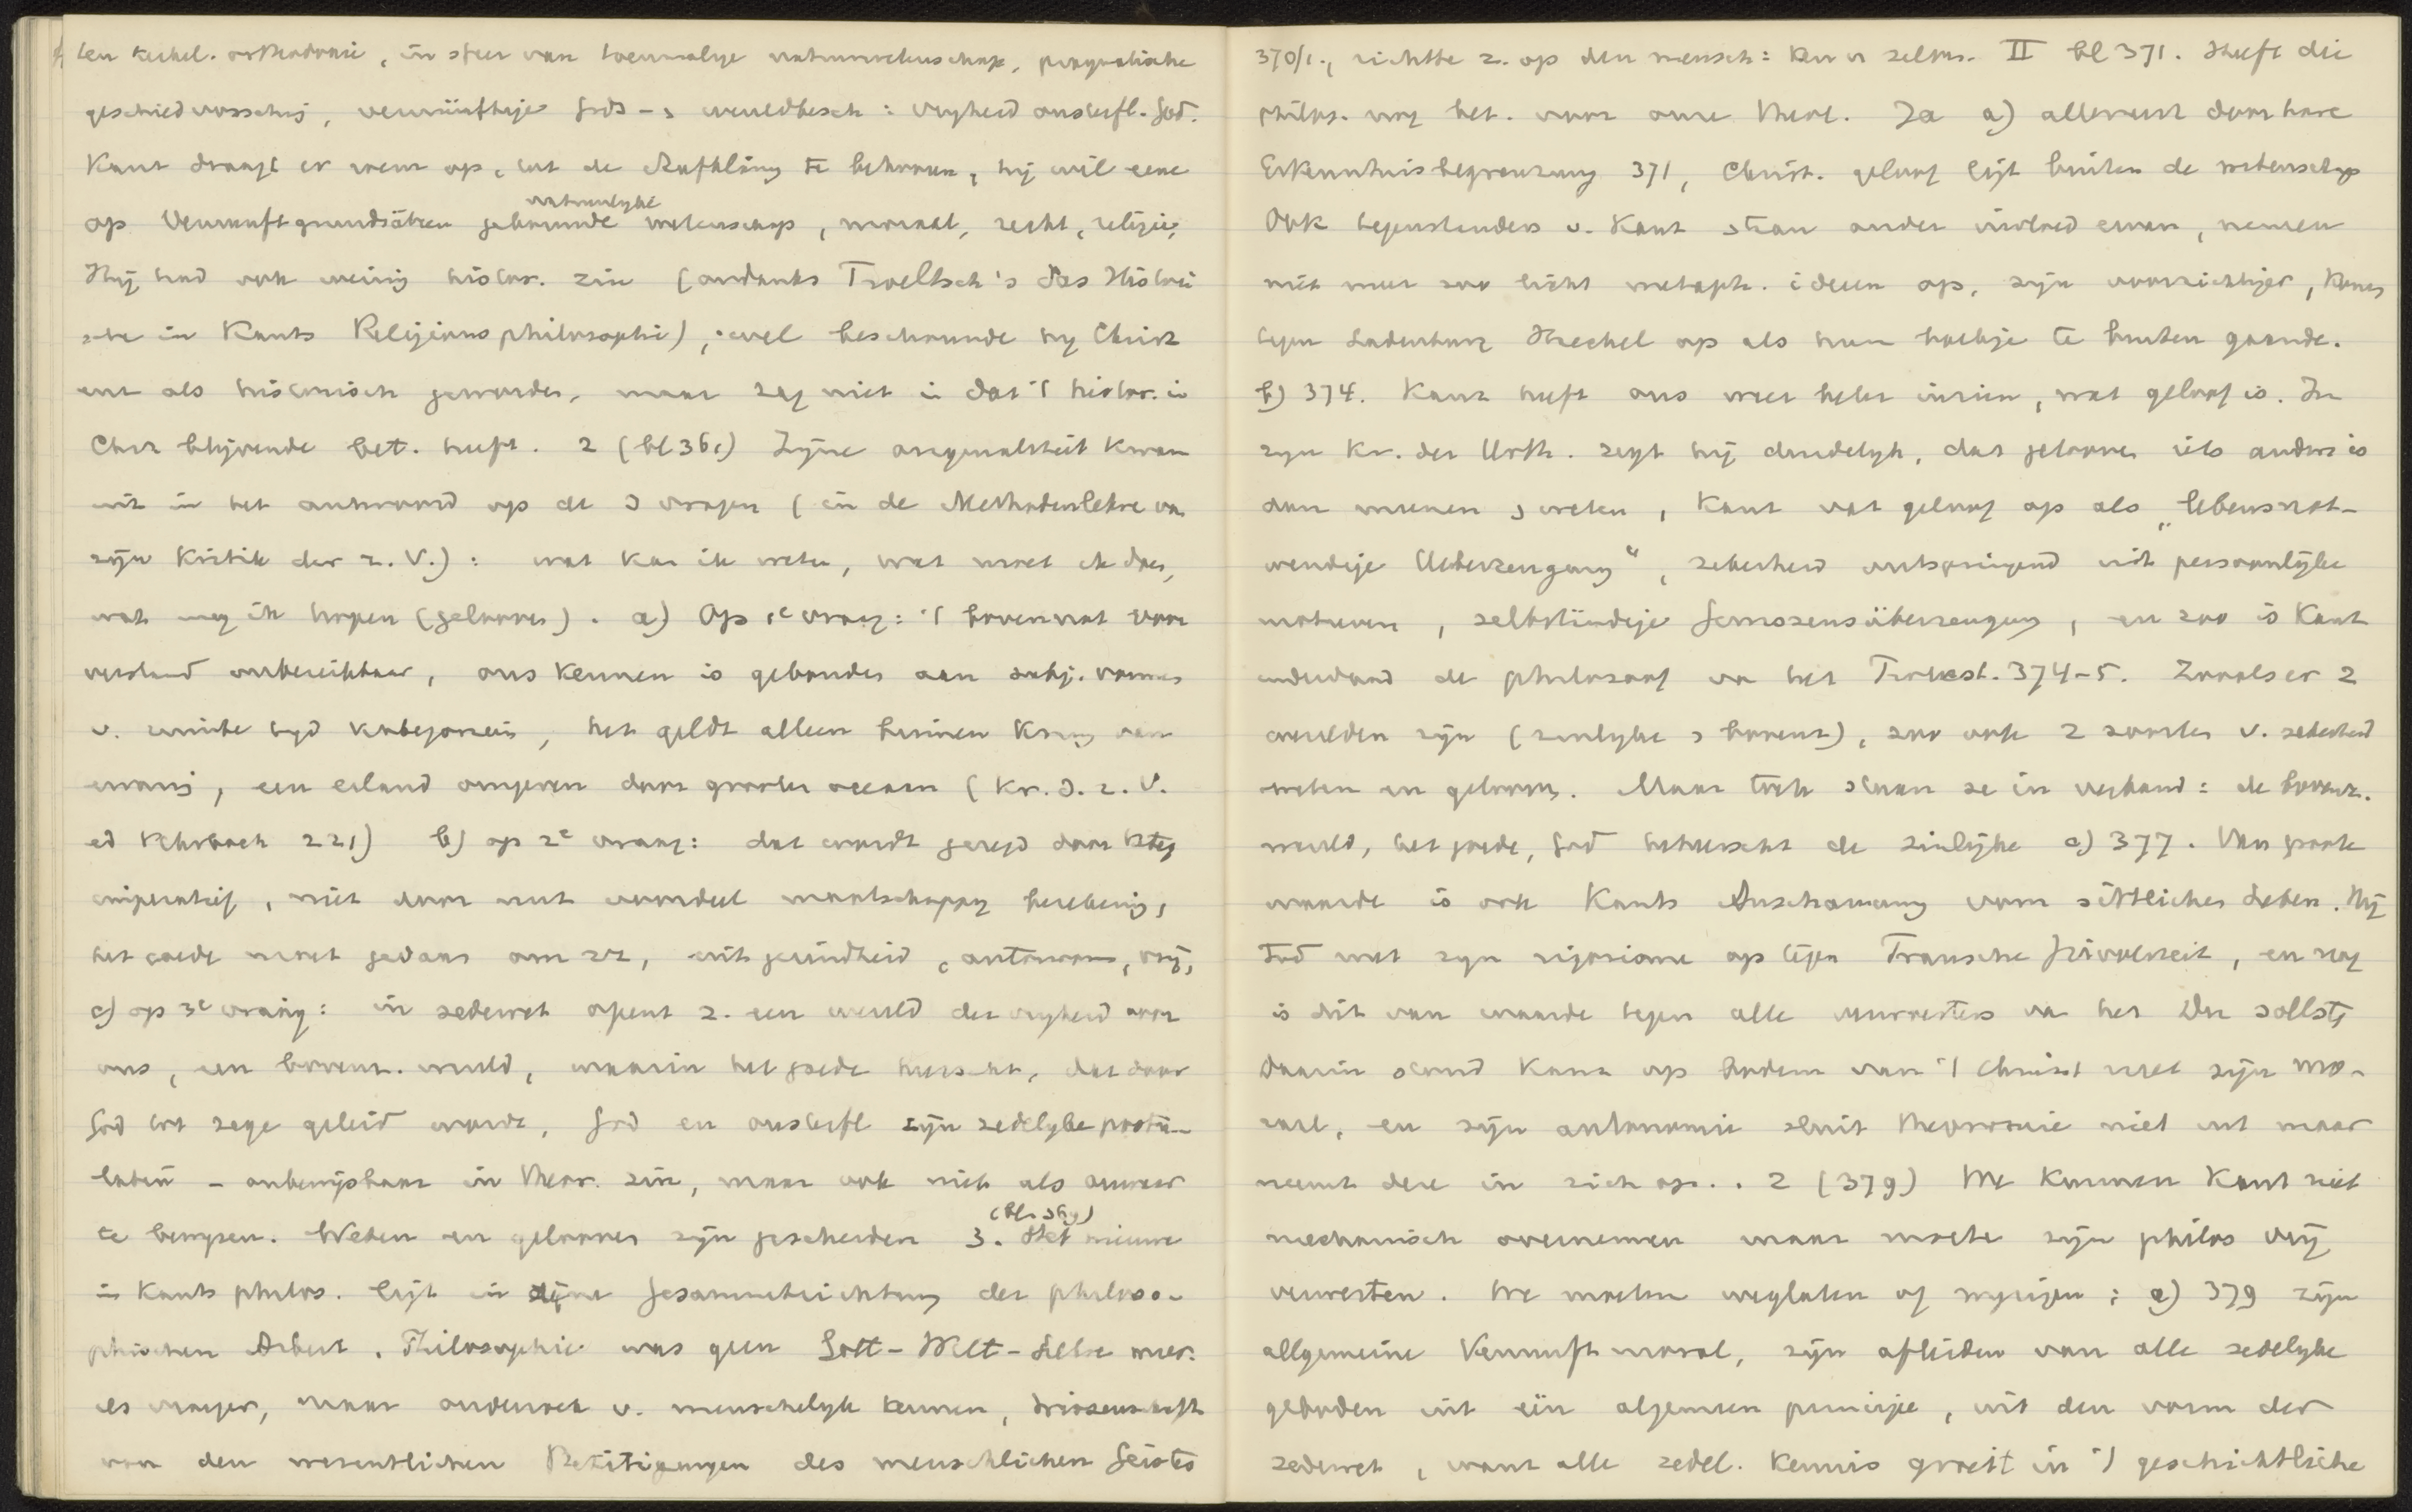 ten kerkel. orthodoxie, in sfeer van toenmalige natuurwetenschap, pragmatische
geschiedvorsching, vernünftige Gods- en wereldbesch: vrijheid onsterfl. God.
Kant draagt er roem op, tot de Aufklärung te behooren, hij wil eene
natuurlyke
op Vernunftgrundsätzen gebouwde wetenschap, moraal, recht, religie,
Hij had ook weinig histor. zin (ondanks Troeltsch's das Histori
sche in Kants Religionsphilosophie), wel beschouwde hy Christ
ent als historisch geworden, maar zag niet in dat 't histor. in
Chr blijvende bet. heeft. 2 (bl 361) Zijne originaliteit kwam
uit in het antwoord op de 3 vragen (in de Methodenlehre van
zijn Kritik der r. V.): wat kan ik weten, wat moet ik doen,
wat mag ik hopen (gelooven). a) Op 1e vraag: 't bovennat voor
verstand onbereikbaar, ons kennen is gebonden aan subj. vormen
v. ruimte tijd kategorieën, het geldt alleen binnen kring van
ervaring, een eiland omgeven door grooten oceaan (Kr. d. r. V.
ed Kehrbach 221) b) op 2e vraag: dat wordt gezegd door kteg
imperatief, niet door nut voordeel maatschappy beloning,
het goede moet gedaan om zz, uit gezindheid, autonoom, vrij,
c) op 3e vraag: in zedewet opent z. een wereld der vryheid voor
ons, een bovenz. wereld, waarin het goede heerscht, dat door
God tot zege geleid wordt, God en onsterfl zijn zedelyke postu-
laten - onbewijsbaar in theor. zin, maar ook niet als onwaar
(bl. 369)
te bewyzen. Weten en gelooven zyn gescheiden 3. Het nieuwe
in Kants philos. ligt in zijne Gesammtrichtung der philoso-
phischen Arbeit. Philosophie was geen Gott-Welt-Lehre meer.
als vroeger, maar onderzoek v. menschelyk kennen, Wissenschaft
von den wesentlichen Betätigungen des menschlichen Geistes
370/1., richtte z. op den mensch: ken u zelven. II bl 371. Heeft die
philos. nog bet. voor onze theol. Ja a) allereerst door hare
Erkenntnisbegrenzung 371, Christ. geloof ligt buiten de wetenschap
Ook tegenstanders v. Kant staan onder invloed ervan, nemen
niet meer zoo licht metaph. ideeen op, zijn voorzichtiger, komen
tegen Ladenburg Haeckel op als hun boekje te buiten gaande.
b) 374. Kant heeft ons weer beter inzien, wat geloof is. In
zyn Kr. der Urth. zegt hij duidelyk, dat gelooven iets anders is
dan meenen en weten, Kant vat geloof op als „lebensnot-
wendige Ueberzeugung“, zekerheid ontspringend uit persoonlijke
motieven, selbständige Gewissensüberzeugung, en zoo is Kant
inderdaad de philosoof van het Protest. 374-5. Zooals er 2
werelden zijn (zinlyke en bovenz), zoo ook 2 soorten v. zekerheid
weten en gelooven. Maar toch staan ze in verband: de bovenz.
wereld, het goede, God beheerscht de zinlijke c) 377. Van groote
waarde is ook Kants Anschauung vom sittlichen Leben. Hij
trad met zyn rigorisme op tegen Fransche frivoliteit, en nog
is dit van waarde tegen alle verwerpers van het Du sollst,
Daarin stond Kant op bodem van 't Christ met zijn mo-
raal, en zijn autonomie sluit theonomie niet uit maar
neemt deze in zich op. . 2 (379) We kunnen Kant niet
mechanisch overnemen maar moeten zijn philos vrij
verwerken. We moeten weglaten of wijzigen: a) 379 zijn
allgemeine Vernunftmoral, zijn afleiden van alle zedelyke
geboden uit één algemeen principe, uit den vorm der
zedewet, want alle zedel. kennis groeit in 't geschichtliche